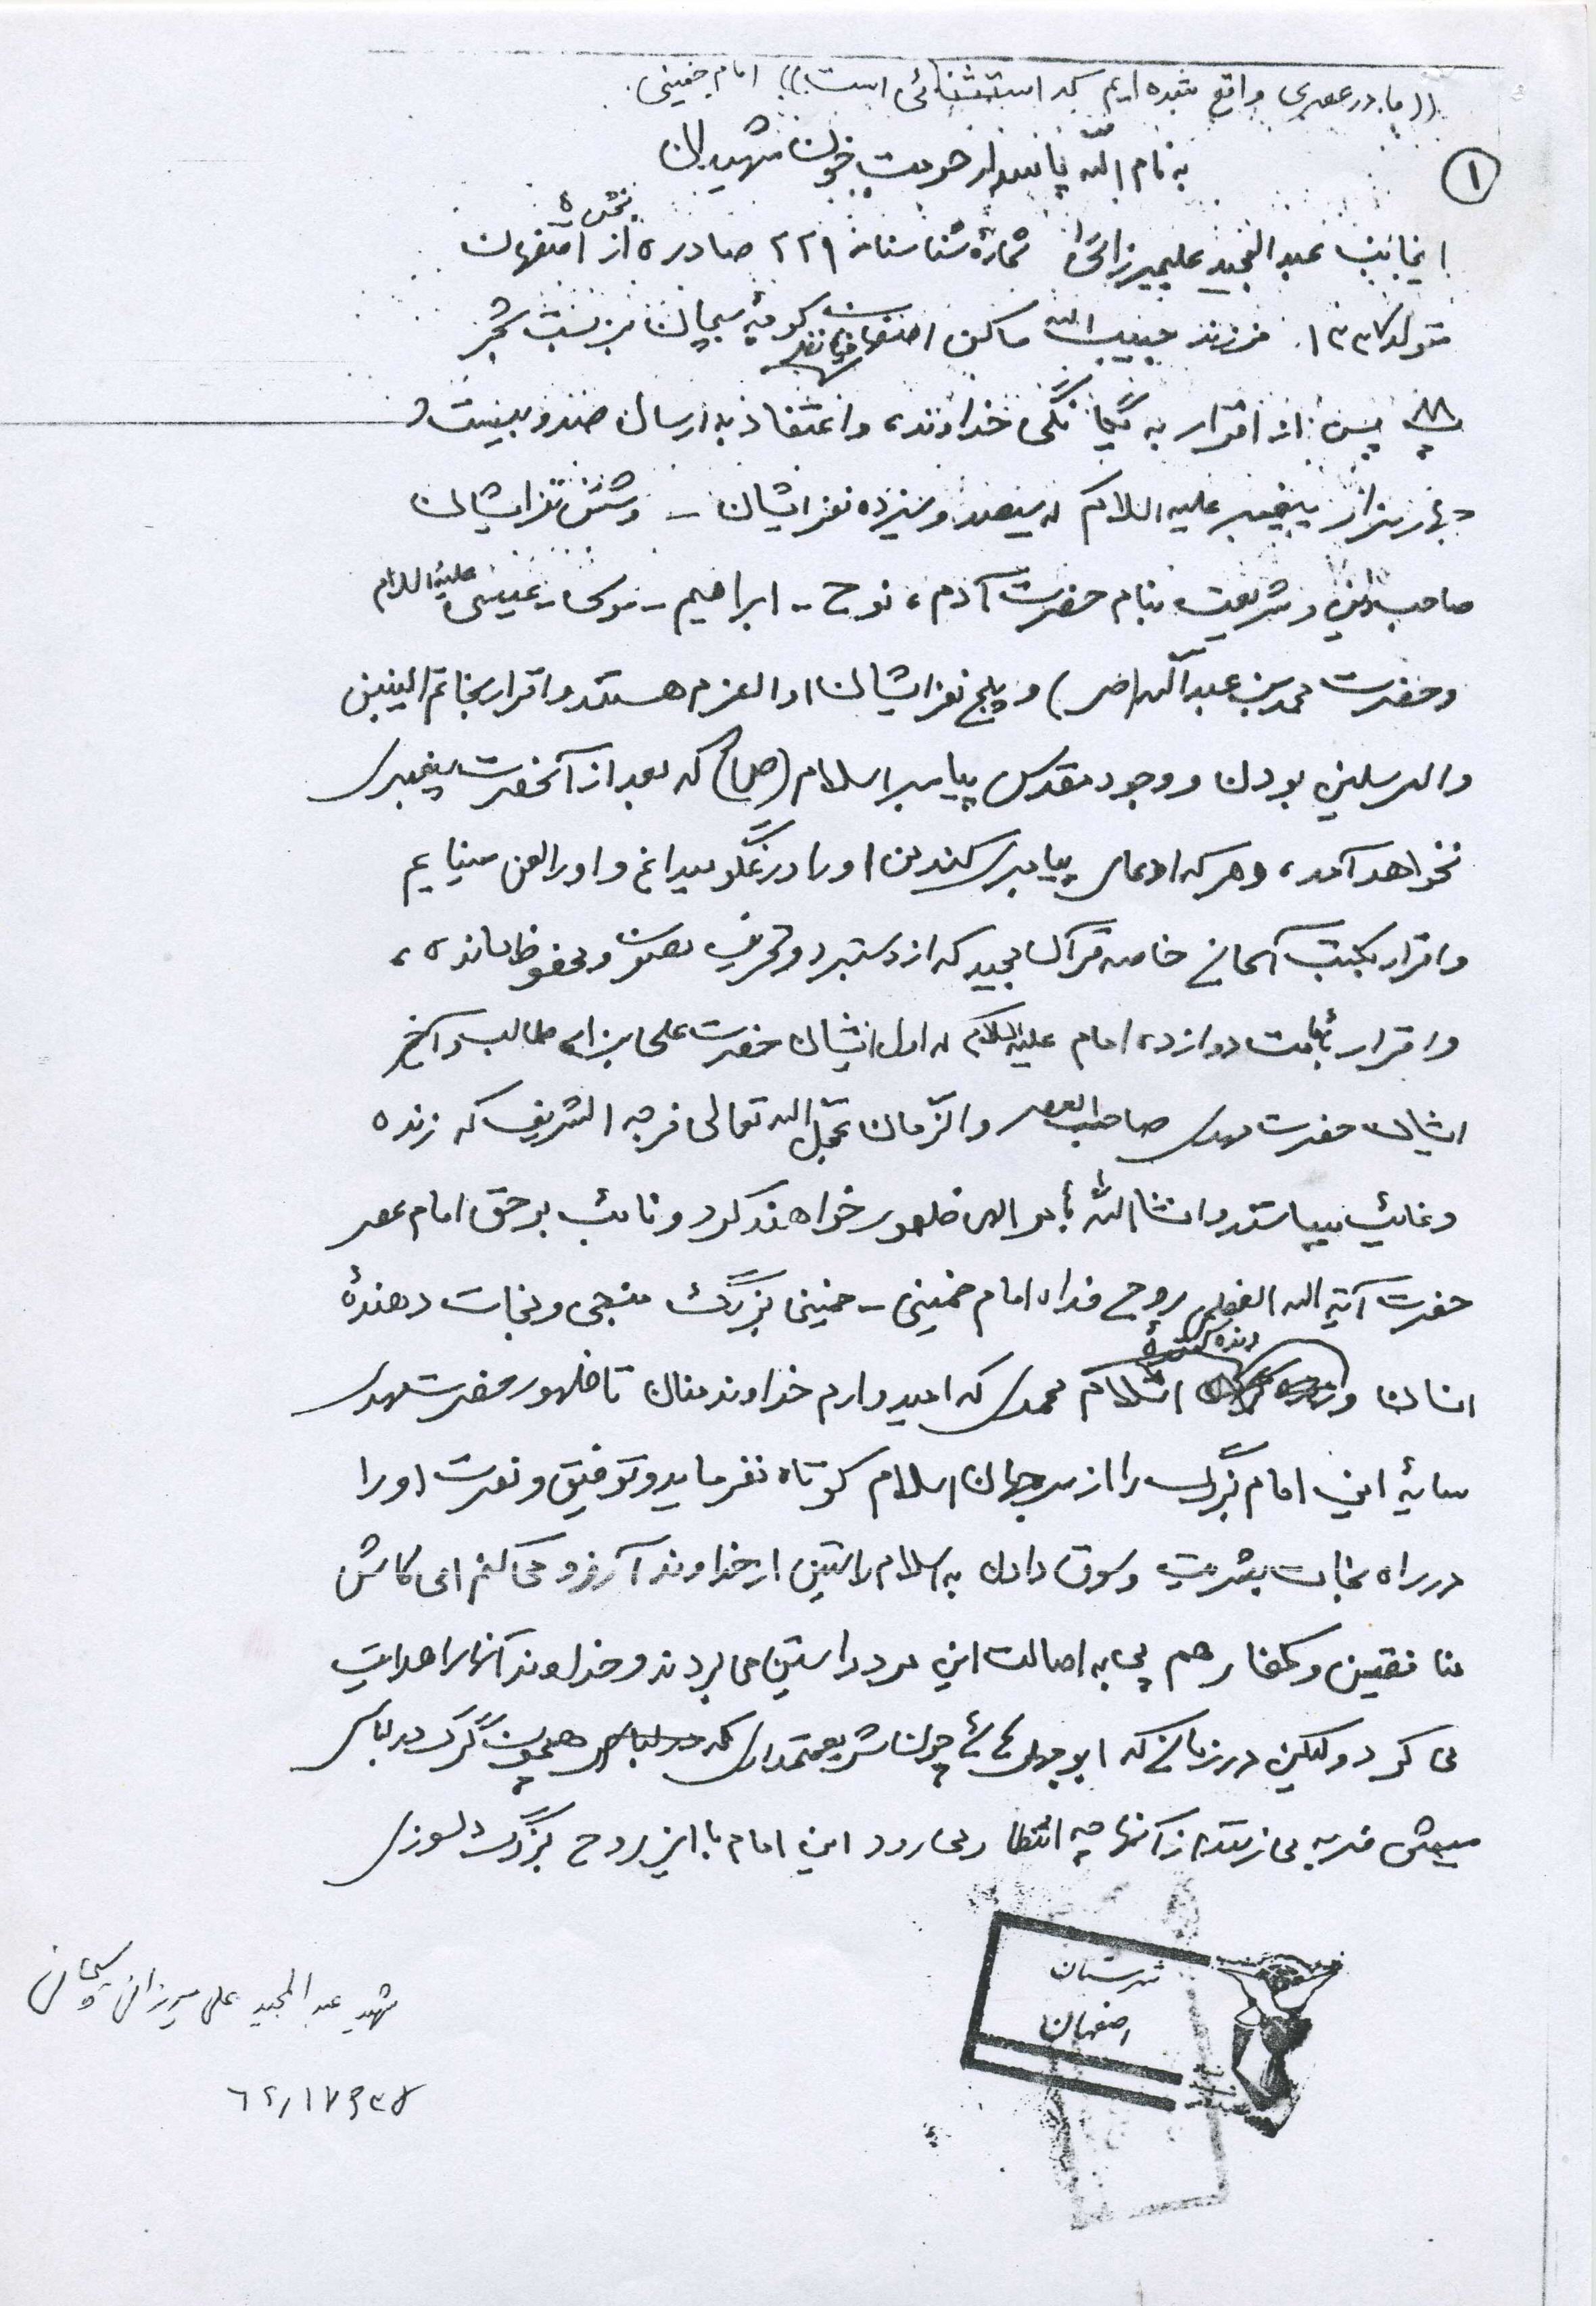 ((ما در عصری واقع شده ایم که استثنائی است)) امام خمینی.
۱
به نام الله پاسدار حرمت خون شهیدان
اینجانب عبدالمجید علیمیرزائی شمارهٔ شناسنامه ۲۲۹ صادره از بخش ۵ اصفهان
متولد ۱۳۳۷ فرزند حبیب الله ساکن اصفهان کوچهٔ سیچان بن بست شجر
پ ۸۸ پس از اقرار به یگانگی خداوند، و اعتقاد به ارسال صد و بیست و
چهار هزار پیغمبر علیه السلام که سیصد و سیزده نفر ایشان - و شش نفر ایشان
صاحب دین و شریعت بنام حضرت آدم، نوح - ابراهیم - موسی - عیسی علیه السلام
و حضرت محمد بن عبدالله (ص) و پنج نفر ایشان اولعزم هستند و اقرار بخاتم النبین
والمرسلین بودن وجود مقدس پیامبر اسلام (ص) که بعد از آنحضرت پیغمبری
نخواهد آمد، و هر که ادعای پیامبری کند من او را دروغگو میدانم و او را لعن مینمایم
و اقرار بکتب آسمانی خاصه قرآن مجید که از دستبرد و تحریف مصون و محفوظ مانده،
و اقرار بامامت دوازده امام علیه السلام که اول ایشان حضرت علی بن ابی طالب و آخر
ایشان حضرت مهدی صاحب العصر و الزّمان عجّل الله تعالی فرجه الشریف که زنده
و غائب میباشند و انشاالله بامر الهی ظهور خواهند کرد و نائب بر حق امام عصر
حضرت آیة الله العظمی روحی فداه امام خمینی - خمینی بزرگ منجی و نجات دهندهٔ
انسان و زنده کنندهٔ اسلام محمدی که امیدوارم خداوند منان تا ظهور حضرت مهدی
سایهٔ این امام بزرگ را از سر جهان اسلام کوتاه نفرماید و توفیق و نصرت او را
در راه نجات بشریت و سوق دادن به اسلام راستین از خداوند آرزو می کنم ای کاش
منافقین و کفار هم پی به اصالت این مرد راستین می بردند و خداوند آنها را هدایت
می کرد و لیکن در زمانی که ابوجهل هائی چون شریعتمداری که همچون گرگ در لباس
میش ضربه می زنند از آنها چه انتظار می رود این امام با این روح بزرگ دلسوزی
شهرستان
اصفهان
شهید عبدالمجید علی میرزائی سیچانی
۶۲/۱۷۹۳۵